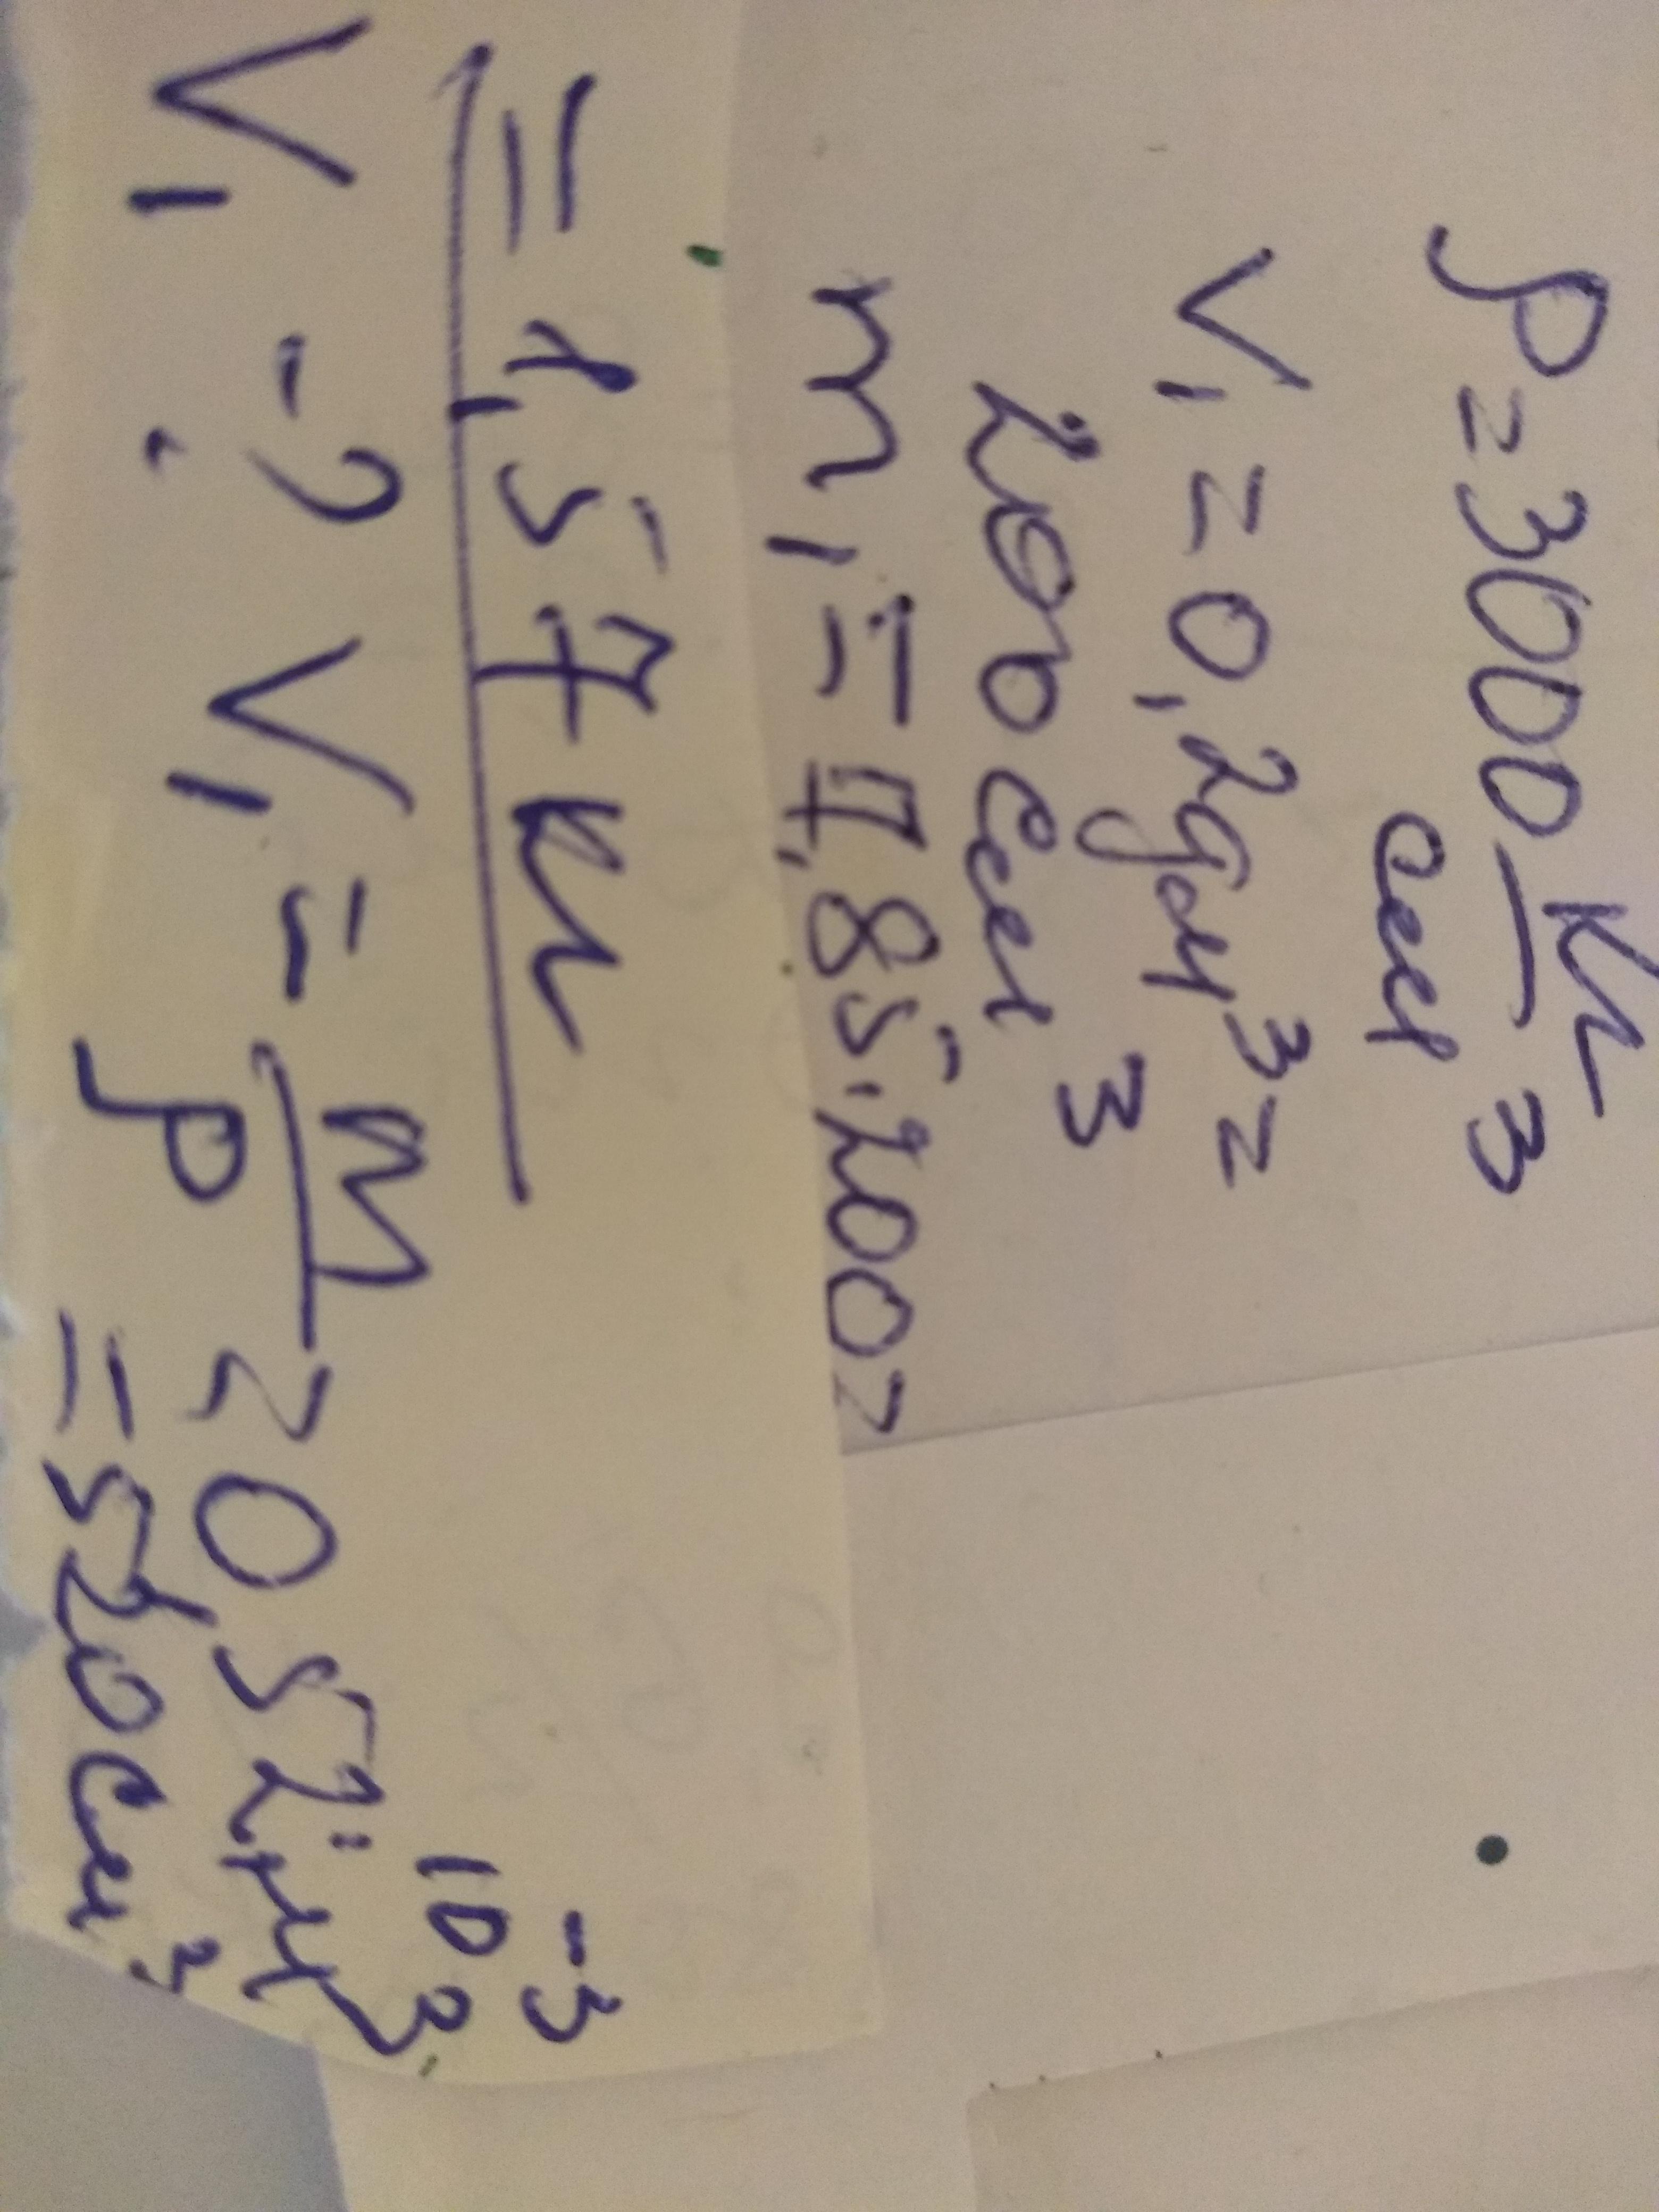 ρ = 3000 кг
см³
V₁ = 0,2 дм³ =
200 см³
m₁ = 7,85·200 =
= 1,57 кг
V₁ - ? V₁ = m/ρ = 0,52·10⁻³ м³
= 520 см³